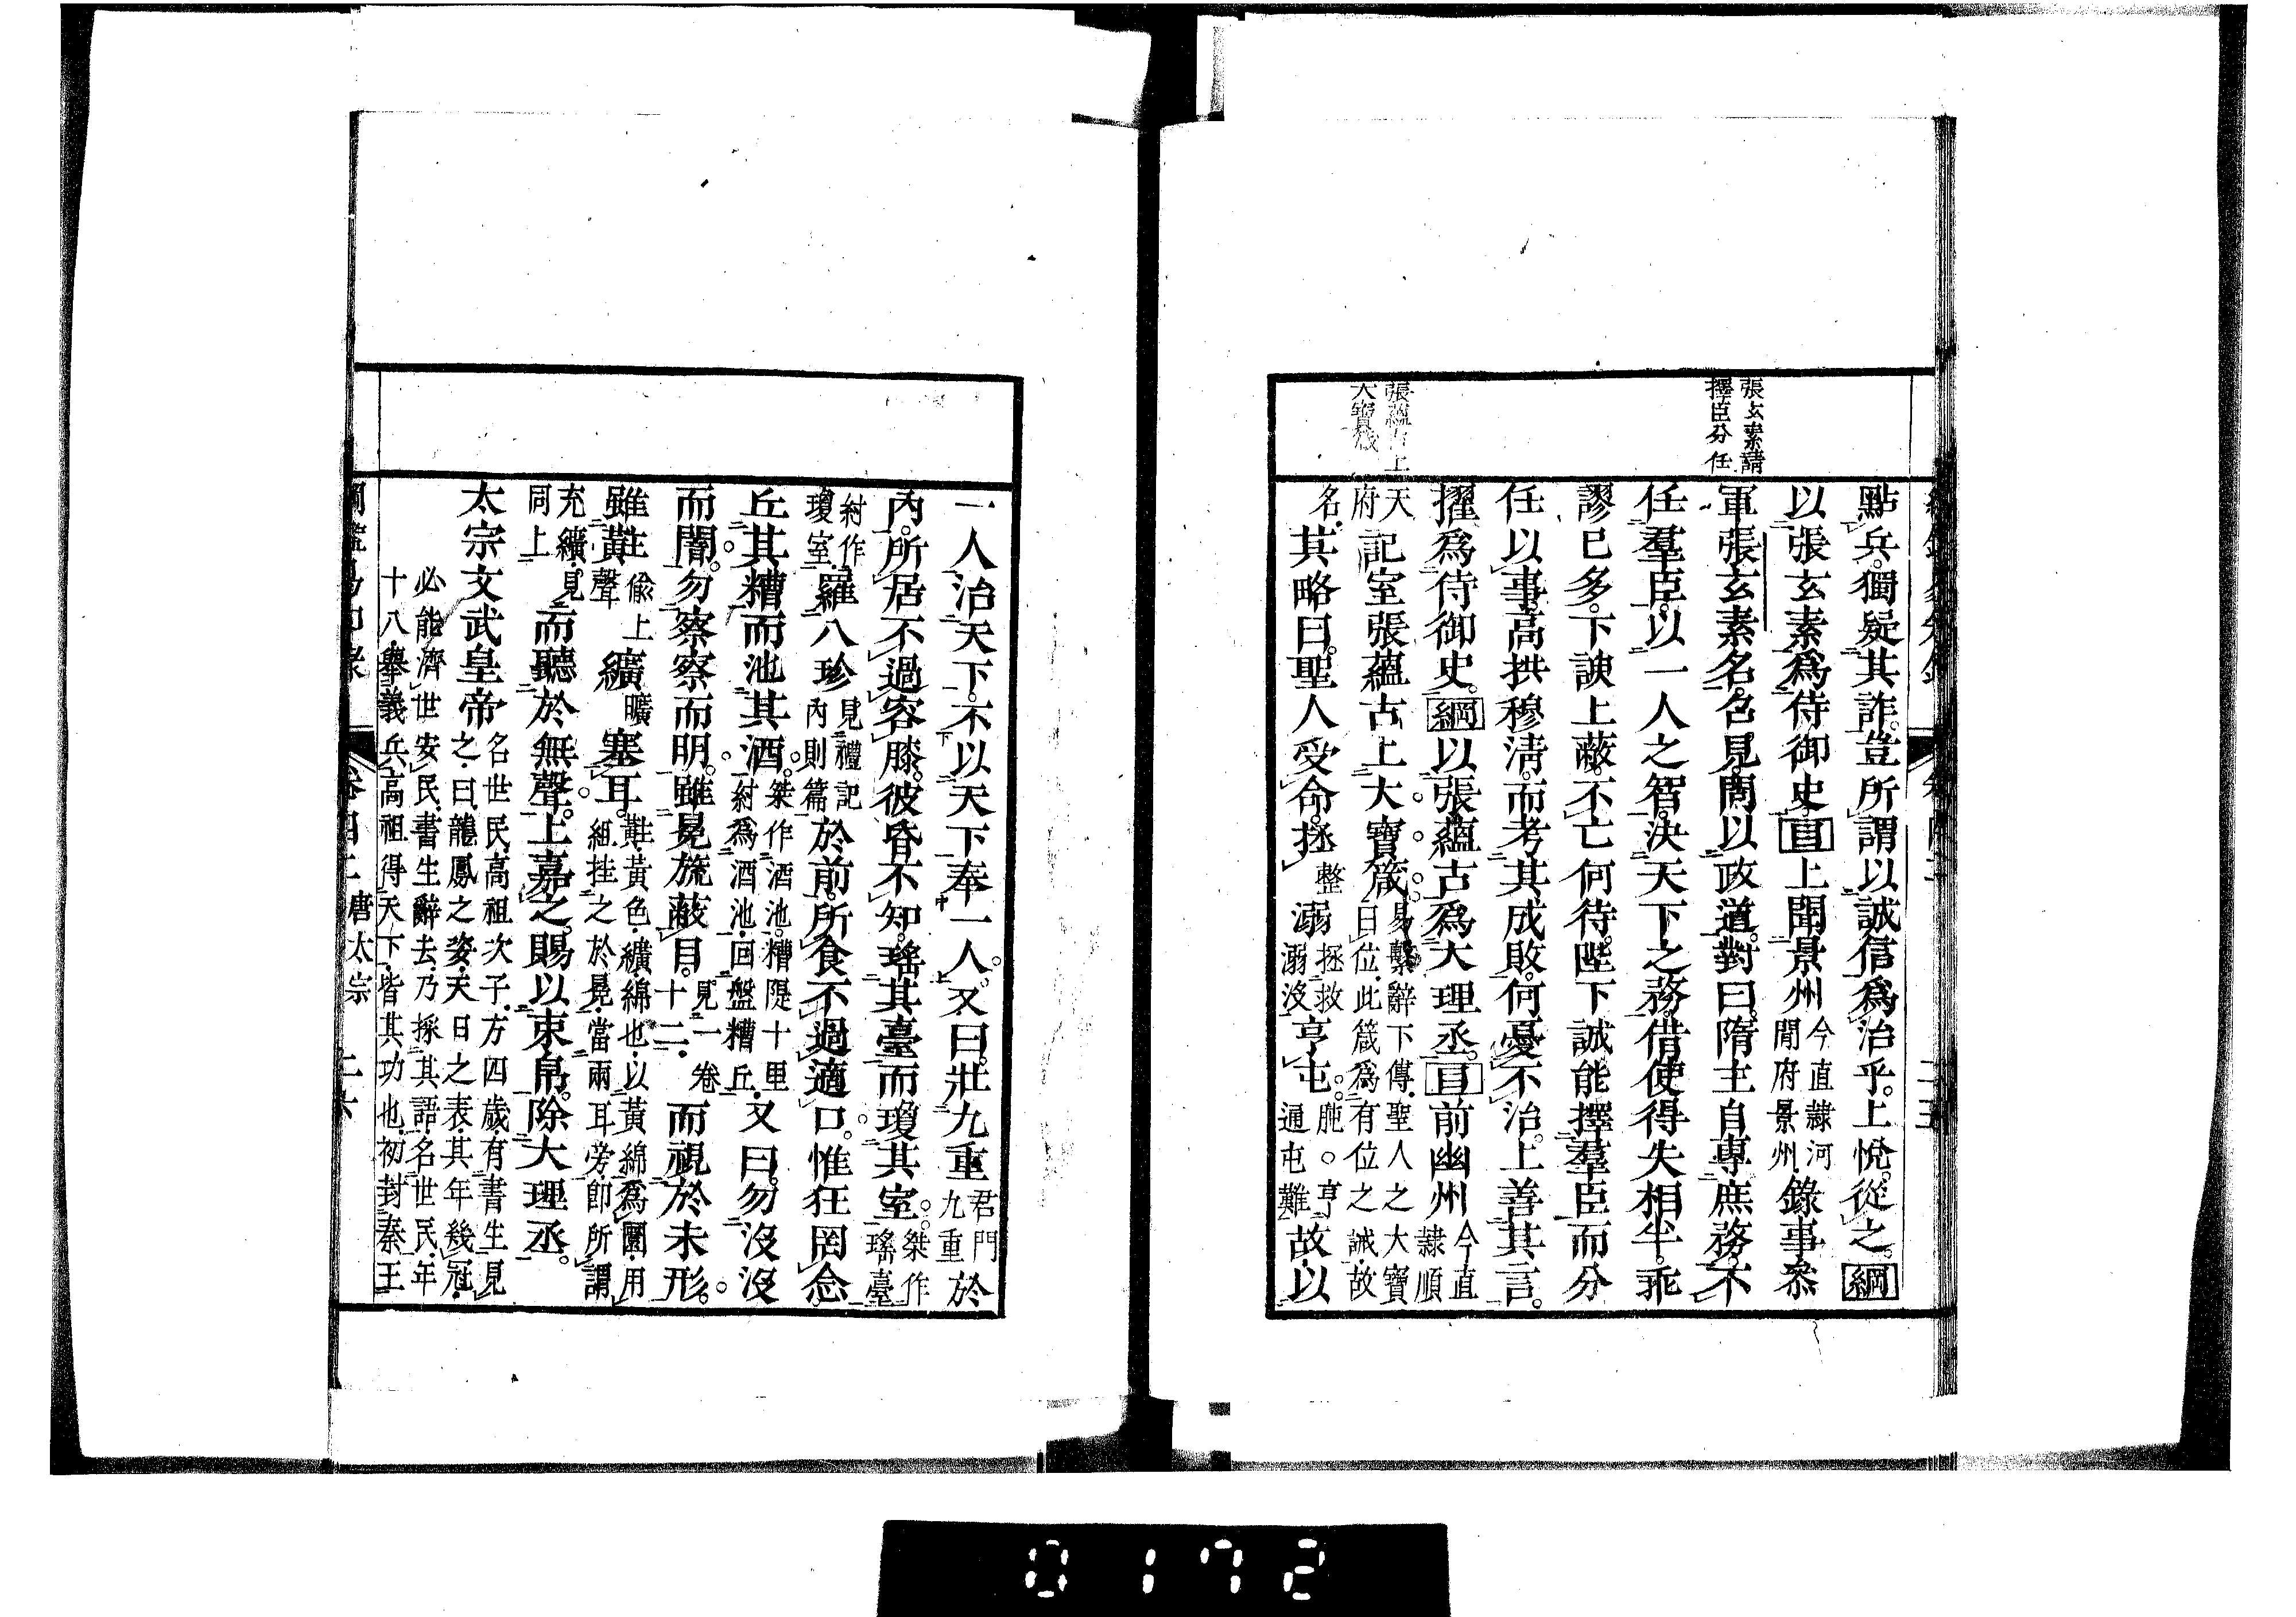 張玄素請
擇臣分任
張蘊古上
大寶箴
點兵獨疑其詐豈所謂以誠信為治乎上悅從之綱
以張玄素為侍御史目上聞景州今直隷河間府景州錄事參
軍張玄素名召見問以政道對曰隋主自專庶務不
任羣臣以一人之智決天下之務借使得失相半乖
謬已多下諛上蔽不亡何待陛下誠能擇羣臣而分
任以事高拱穆清而考其成敗何憂不治上善其言
擢為侍御史綱以張蘊古為大理丞目前幽州今直隷順
天府記室張蘊古上大寶箴易繫辭下傳聖人之大寶曰位此箴為有位之誡故
名其略曰聖人受命拯整溺拯救溺沒亨屯亨通屯難故以
一人治天下不以天下奉一人又曰壯九重君門九重於
內所居不過容膝彼昏不知瑤其臺而瓊其室桀作瑤臺
紂作瓊室羅八珍見禮記內則篇於前所食不過適口惟狂罔念
丘其糟而池其酒桀作酒池糟隄十里紂為酒池回盤糟丘又曰勿沒沒
而闇勿察察而明雖冕旒蔽目見一卷十二而視於未形
雖黈偸上聲纊曠塞耳黈黃色纊綿也以黃綿為圜用組挂之於冕當兩耳旁即所謂
充纊見同上而聽於無聲上嘉之賜以束帛除大理丞
太宗文武皇帝名世民高祖次子方四歲有書生見之曰龍鳳之姿天日之表其年幾冠
必能濟世安民書生辭去乃採其語名世民年
十八舉義兵高祖得天下皆其功也初封秦王
卷四十二 唐太宗 二六
0172